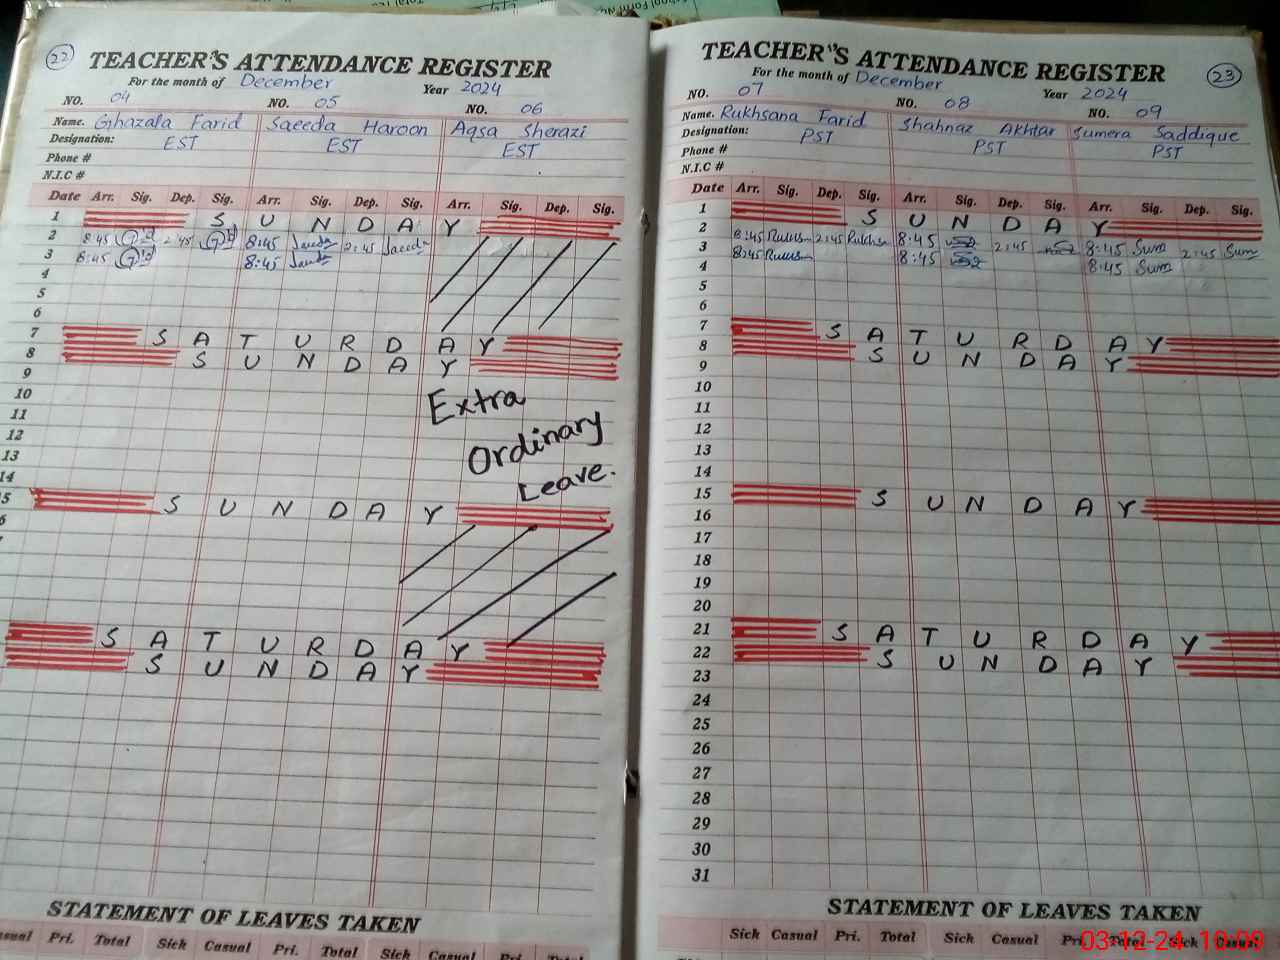 School Form No
22
TEACHER'S ATTENDANCE REGISTER
For the month of December Year 2024
NO. 04 NO. 05 NO. 06
Name. Ghazala Farid Saeeda Haroon Aqsa Sherazi
Designation: EST EST EST
Phone #
N.I.C #
Date Arr. Sig. Dep. Sig. Arr. Sig. Dep. Sig. Arr. Sig. Dep. Sig.
1 SUNDAY
2 8:45 2:45 8:45 Saeeda 2:45 Saeeda
3 8:45 8:45 Saeeda
4
5
6
7 SATURDAY
8 SUNDAY
9
10
11
12
13
14
Extra
Ordinary
Leave.
15 SUNDAY
SATURDAY
SUNDAY
STATEMENT OF LEAVES TAKEN
Pri. Total Sick Casual Pri. Total Sick Casual Pri. Total
23
TEACHER'S ATTENDANCE REGISTER
For the month of December Year 2024
NO. 07 NO. 08 NO. 09
Name. Rukhsana Farid Shahnaz Akhtar Sumera Saddique
Designation: PST PST PST
Phone #
N.I.C #
Date Arr. Sig. Dep. Sig. Arr. Sig. Dep. Sig. Arr. Sig. Dep. Sig.
1 SUNDAY
2 8:45 2:45 8:45 2:45 8:45 Sum 2:45 Sum
3 8:45 8:45 8:45 Sum
4
5
6
7 SATURDAY
8 SUNDAY
9
10
11
12
13
14
15 SUNDAY
16
17
18
19
20
21 SATURDAY
22 SUNDAY
23
24
25
26
27
28
29
30
31
STATEMENT OF LEAVES TAKEN
Sick Casual Pri. Total Sick Casual Pri. Total Sick Casual
03-12-24 10:09